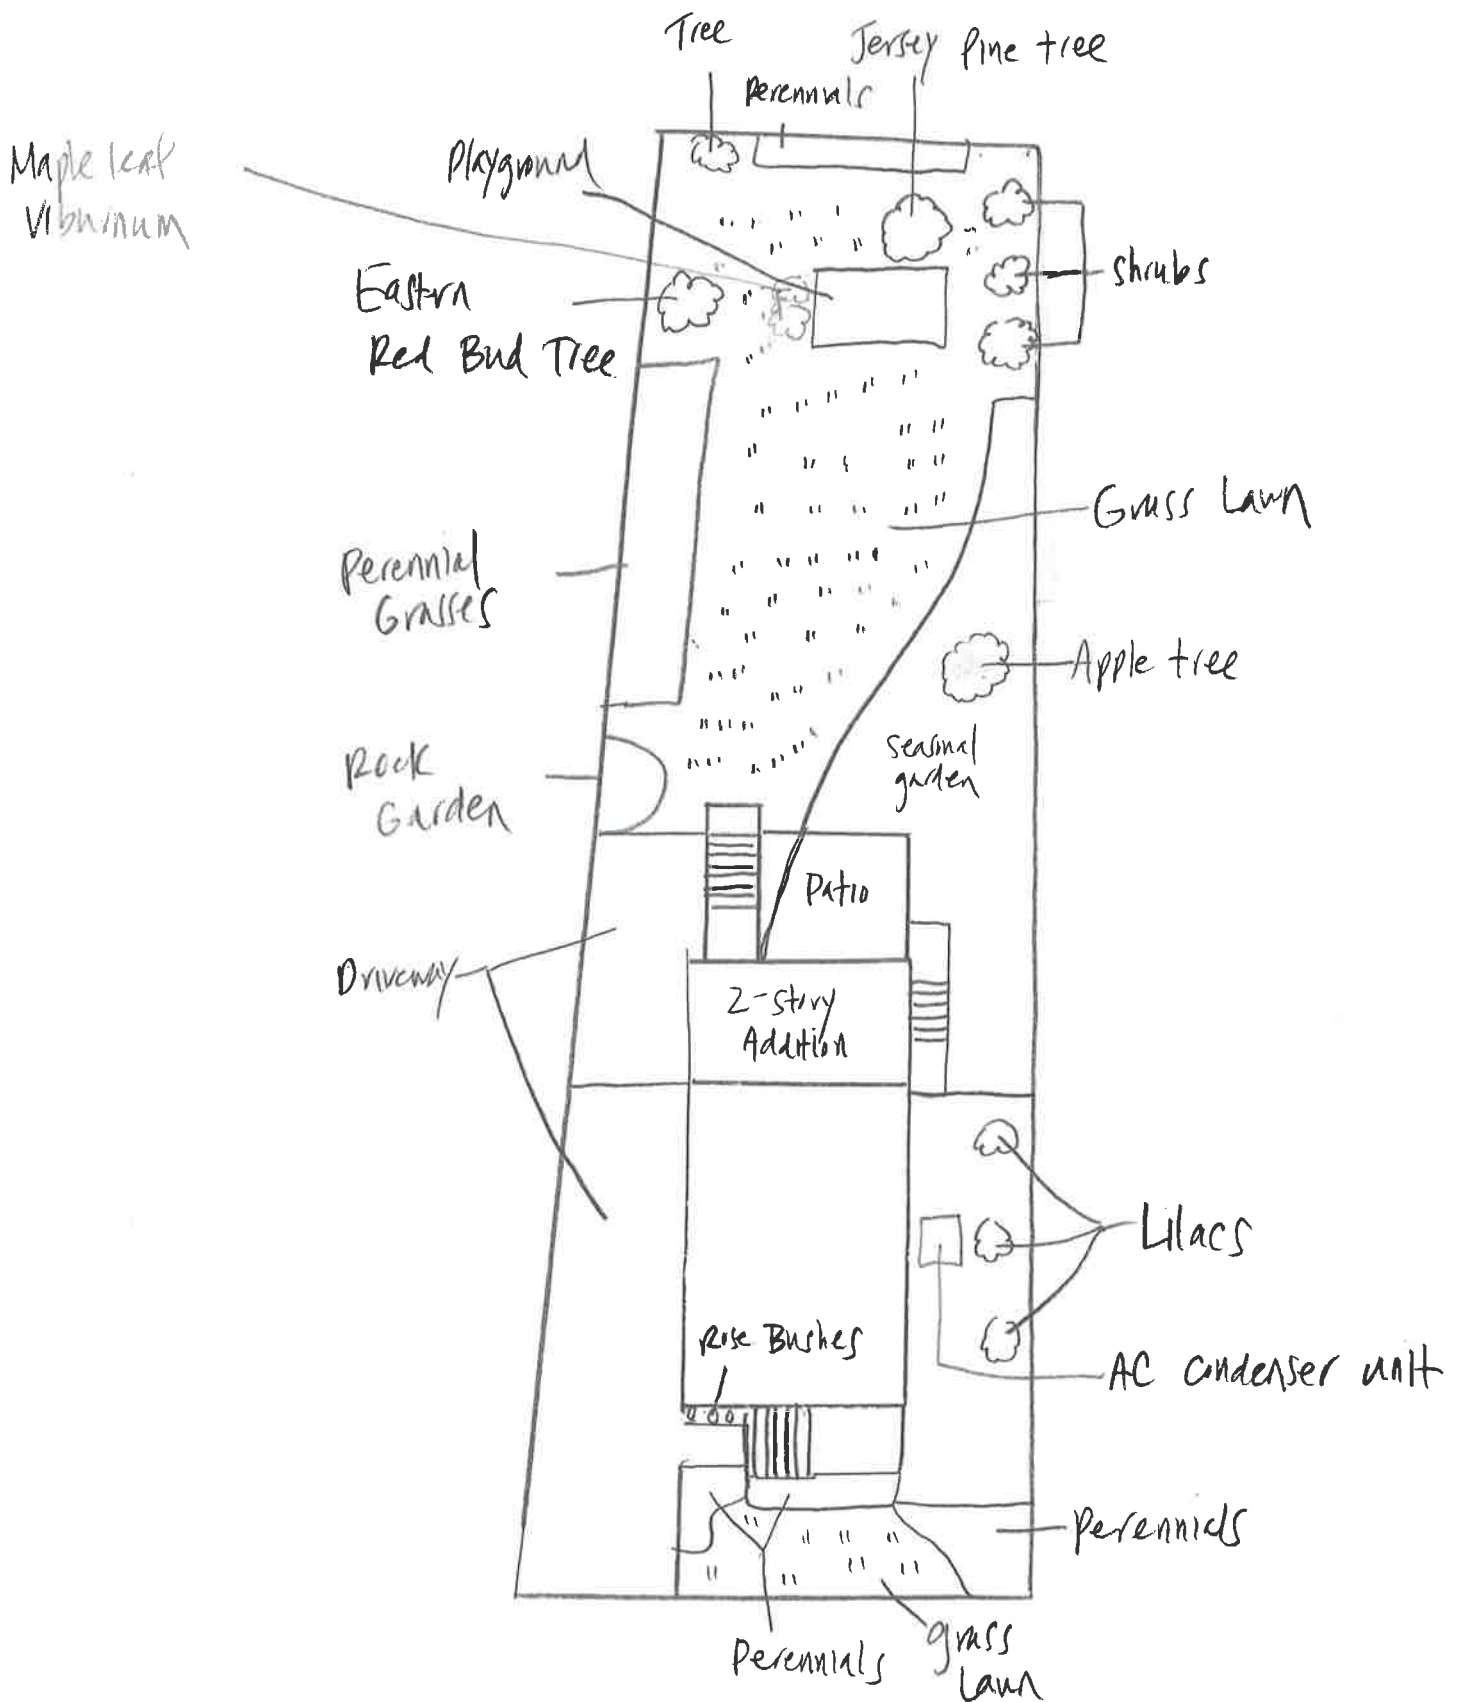 Tree
Jersey Pine tree
Perennials
Maple leaf
Viburnum
Playground
Eastern
Red Bud Tree
Shrubs
Grass Lawn
Perennial
Grasses
Apple tree
Seasonal
garden
Rock
Garden
Patio
Driveway
2-story
Addition
Lilacs
Rose Bushes
AC condenser unit
Perennials
Perennials
grass
Lawn